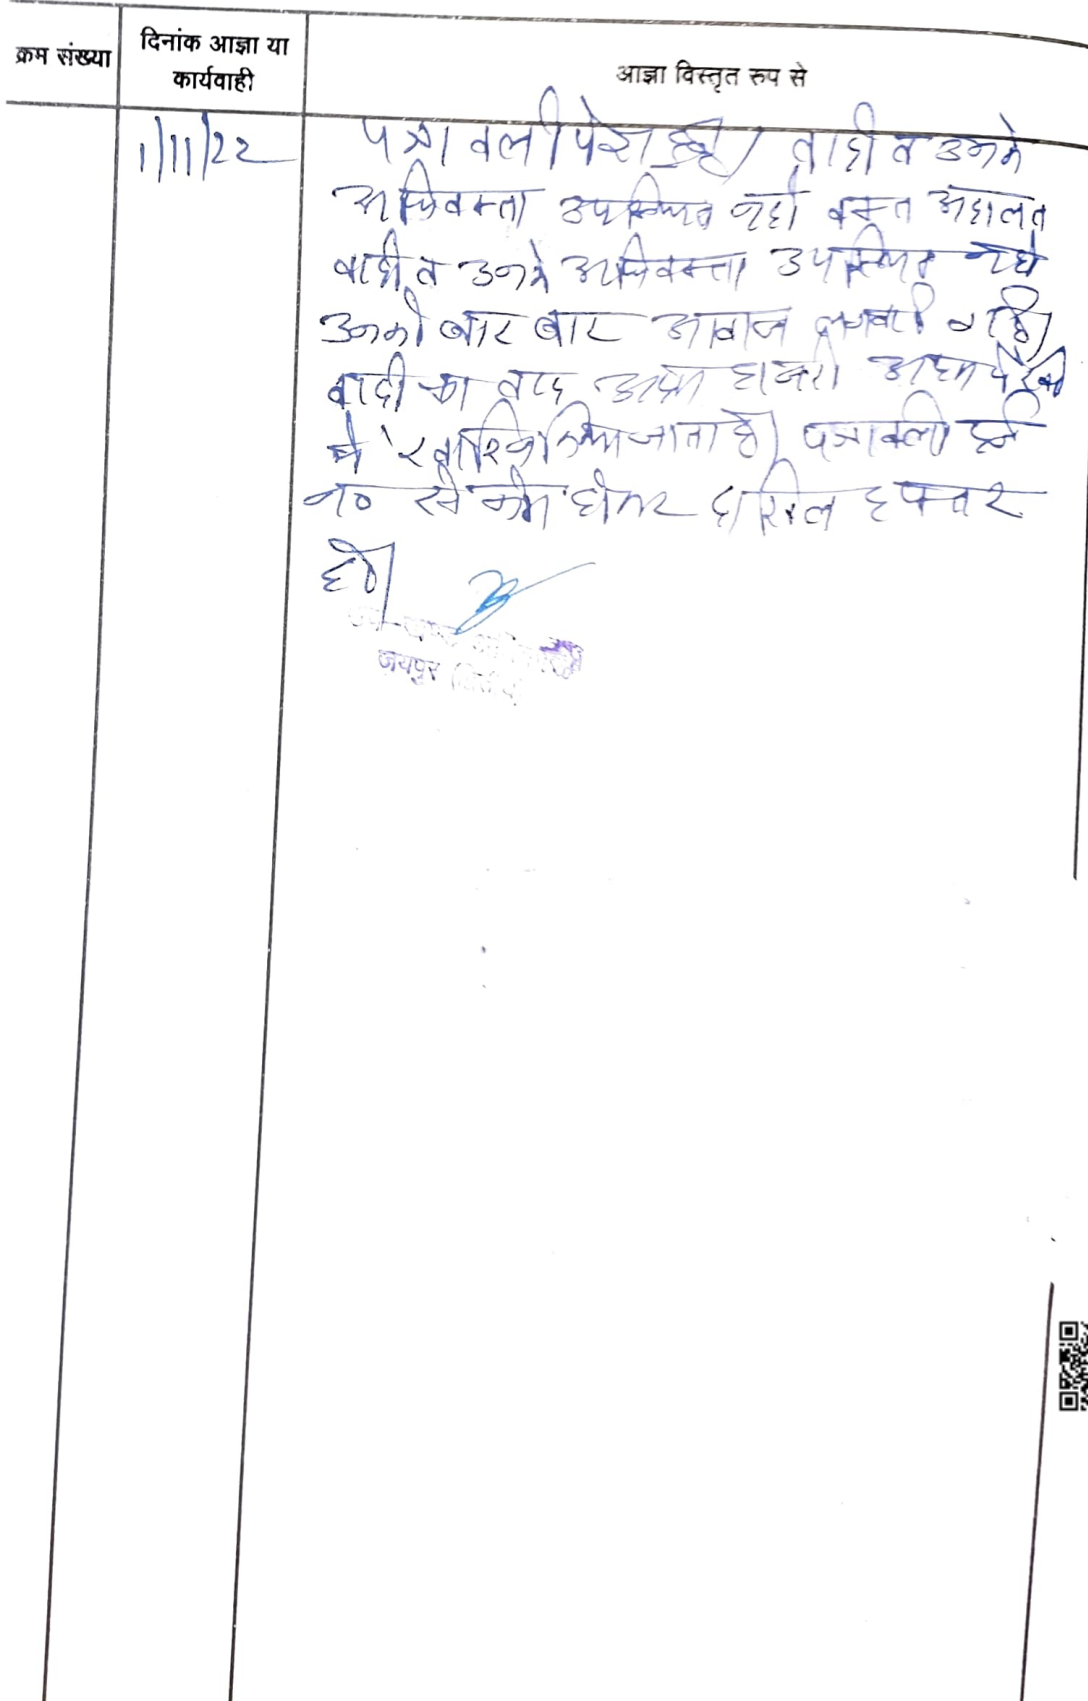 क्रम संख्या
दिनांक आज्ञा या
कार्यवाही
आज्ञा विस्तृत रुप से
1/11/22
पत्रावली पेश हुई। वादी व उनके
अधिवक्ता उपस्थित नहीं वक्त अदालत
वादी व उनके अधिवक्ता उपस्थित नहीं
उनको बार बार आवाज लगवाई गई है।
वादी का वाद अदम हाजरी अदम पैरवी
मे खारिज किया जाता है। पत्रावली
न० से कम होकर दाखिल दफ्तर
हो।
जयपुर